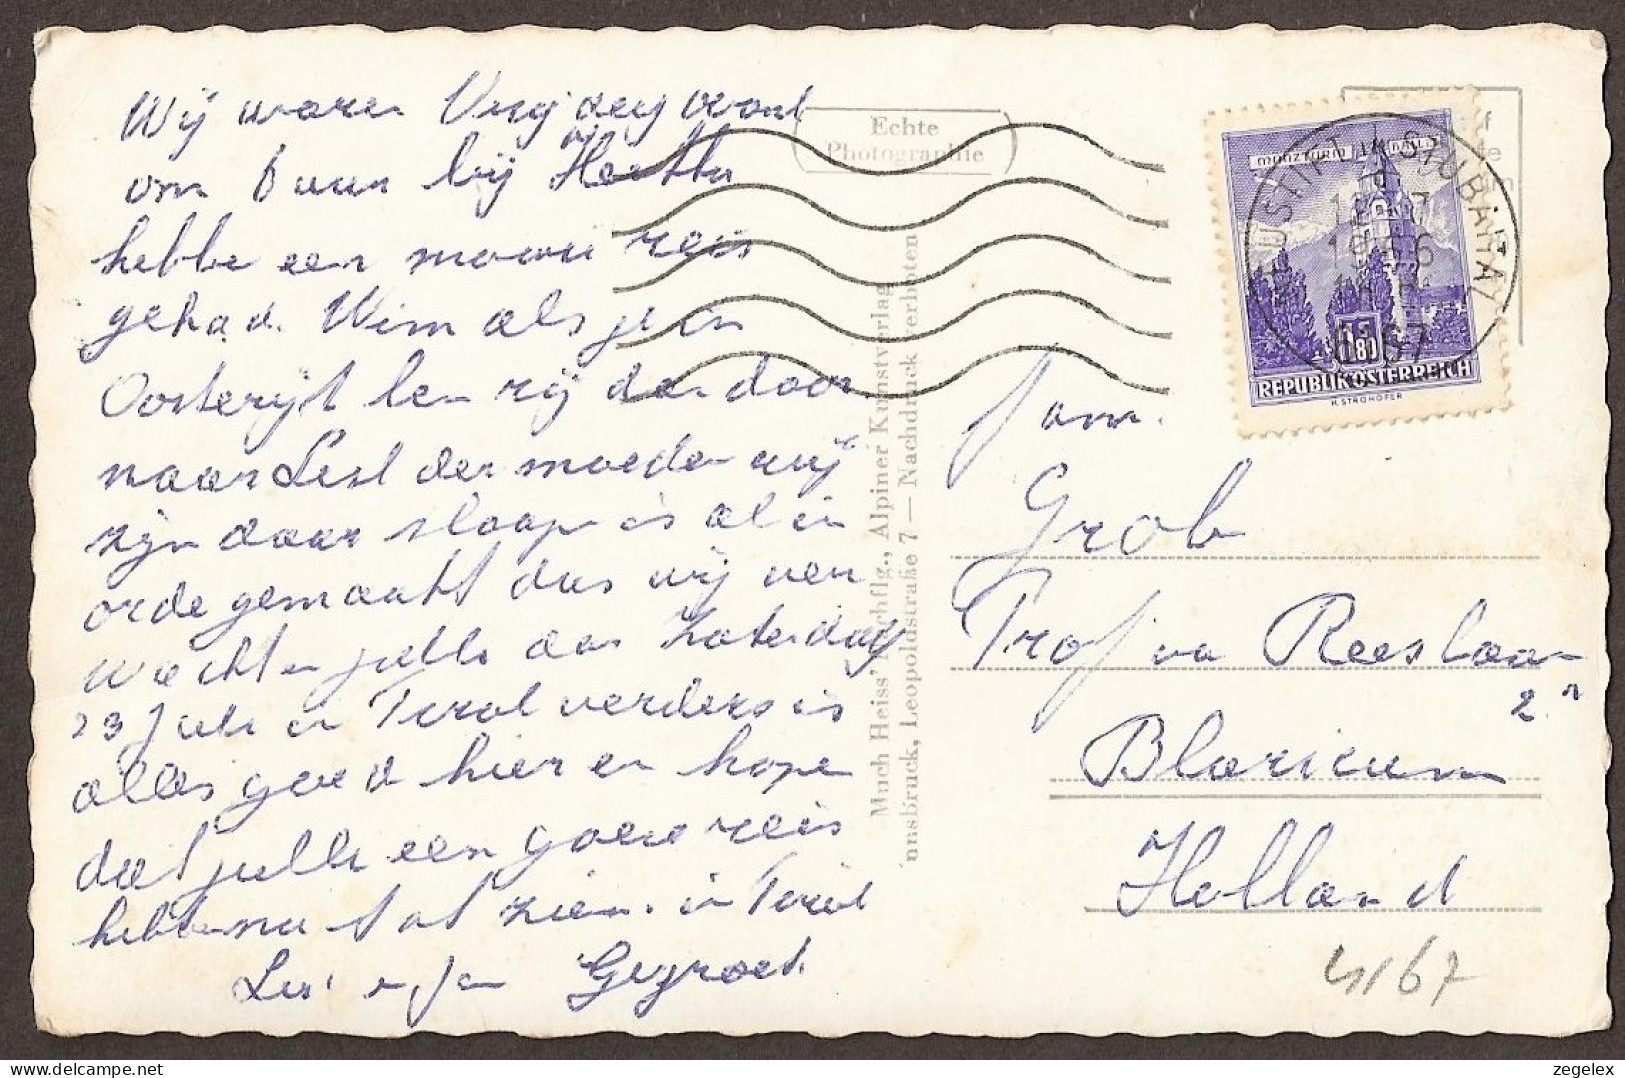 Wij waren Vrijdag avond
om 6 uur bij Hertha
hebbe een mooie reis
gehad. Wim als je in
Oosterijk ben rij dan door
naar Lest der moeder wij
zijn daar slaape is al in
orde gemaakt dus wij ver
wachten jullie dan Zaterdag
23 Juli in Tirol verders is
alles goed hier en hope
dat jullie een goeie reis
hebben nu tot ziens in Tirol
en Jan Gegroet.
Echte
Photographie
Much Heiss' Nachflg., Alpiner Kunstverlag
nnsbruck, Leopoldstraße 7 — Nachdruck verboten
MÜNZTURM IN HALL
NEUSTIFT IM STUBAITAL
6167
1.80
REPUBLIK ÖSTERREICH
H. STROHOFER
Fam.
Grob
Prof va Reeslaan
2
Blaricum
Holland
zegelex.com